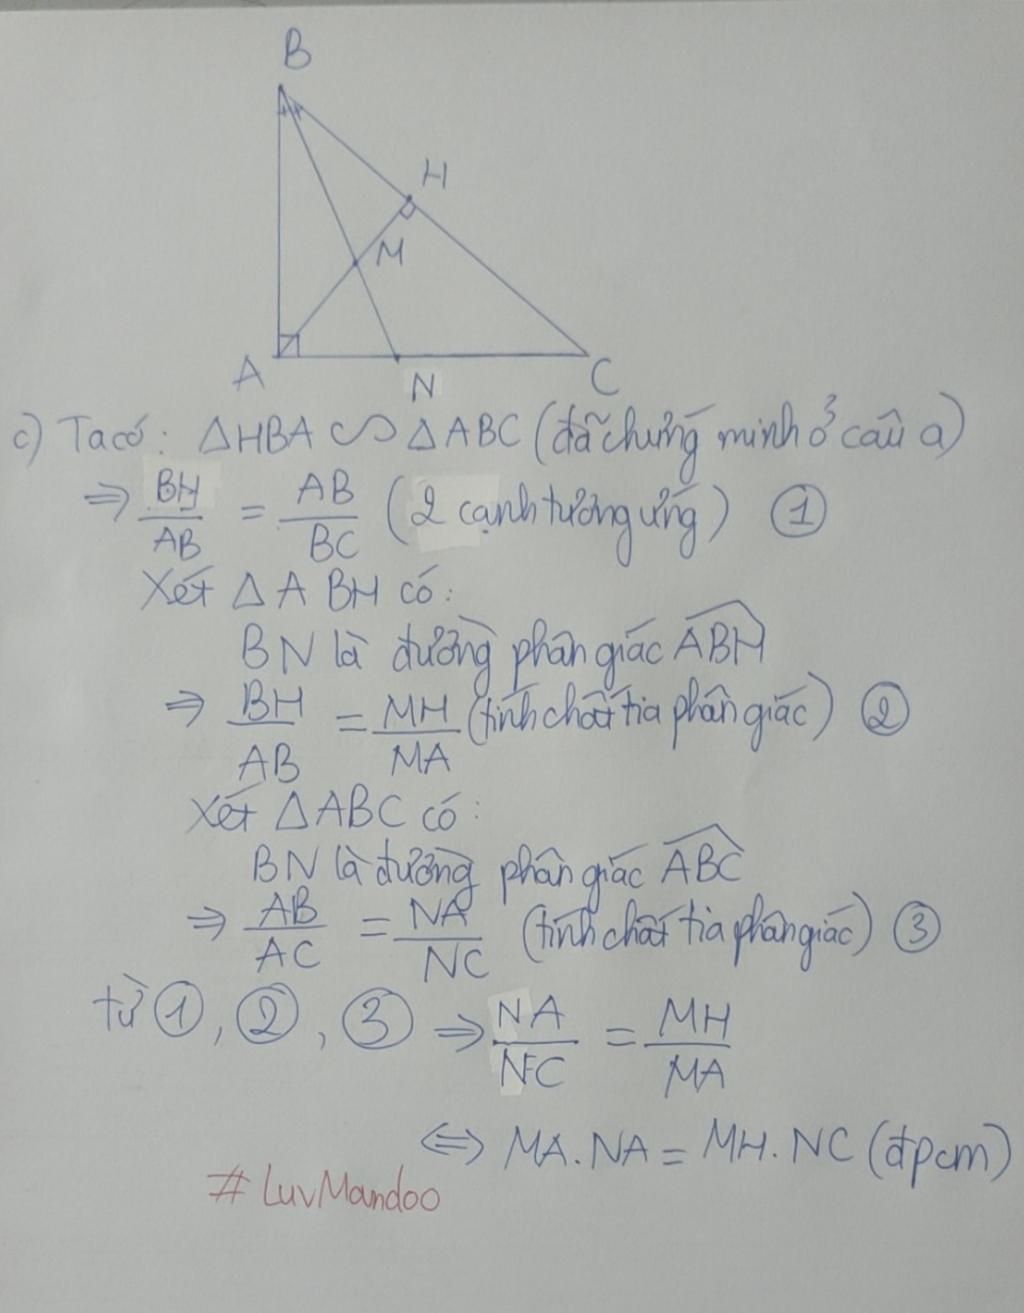 B
H
M
A
N
C
c) Ta có: ΔHBA ∽ ΔABC (đã chứng minh ở câu a)
⇒ BH/AB = AB/BC (2 cạnh tương ứng) ①
Xét ΔABH có:
BN là đường phân giác ABH
⇒ BH/AB = MH/MA (tính chất tia phân giác) ②
Xét ΔABC có:
BN là đường phân giác ABC
⇒ AB/AC = NA/NC (tính chất tia phân giác) ③
từ ①, ②, ③ ⇒ NA/NC = MH/MA
⇔ MA.NA = MH.NC (đpcm)
# LuvMandoo